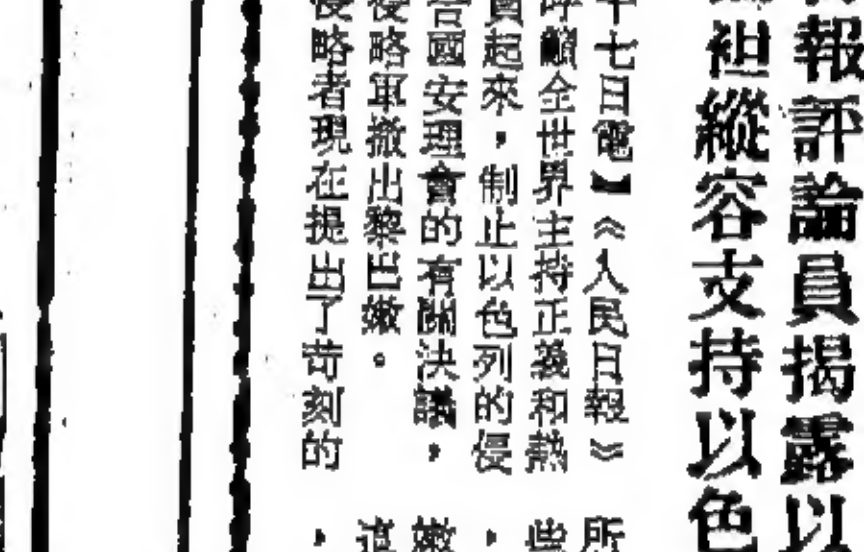 報評論員揭露以
袒縱容支持以色
十七日電】《人民日報》
呼籲全世界主持正義和熱
起來，制止以色列的侵
國安理會的有關決議，
侵略軍撤出黎巴嫩。
侵略者現在提出了苛刻的
所
些
，
嫩
這
，